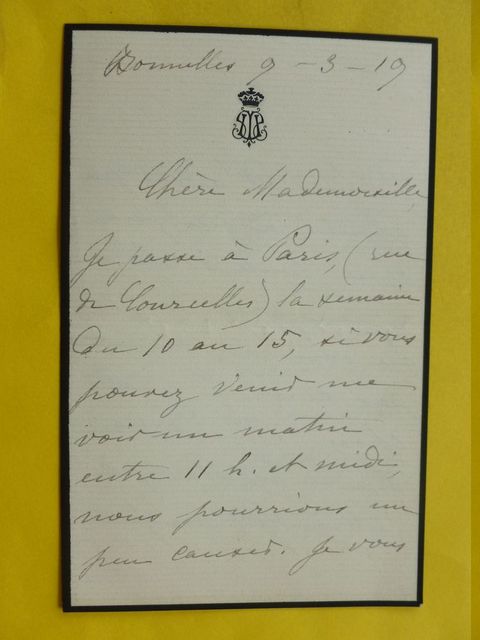 Bonnelles 9-3-19
Chère Mademoiselle,
Je passe à Paris, (rue
de Courcelles) la semaine
du 10 au 15, si vous
pouvez venir me
voir un matin
entre 11 h. et midi,
nous pourrions un
peu causer. Je vous